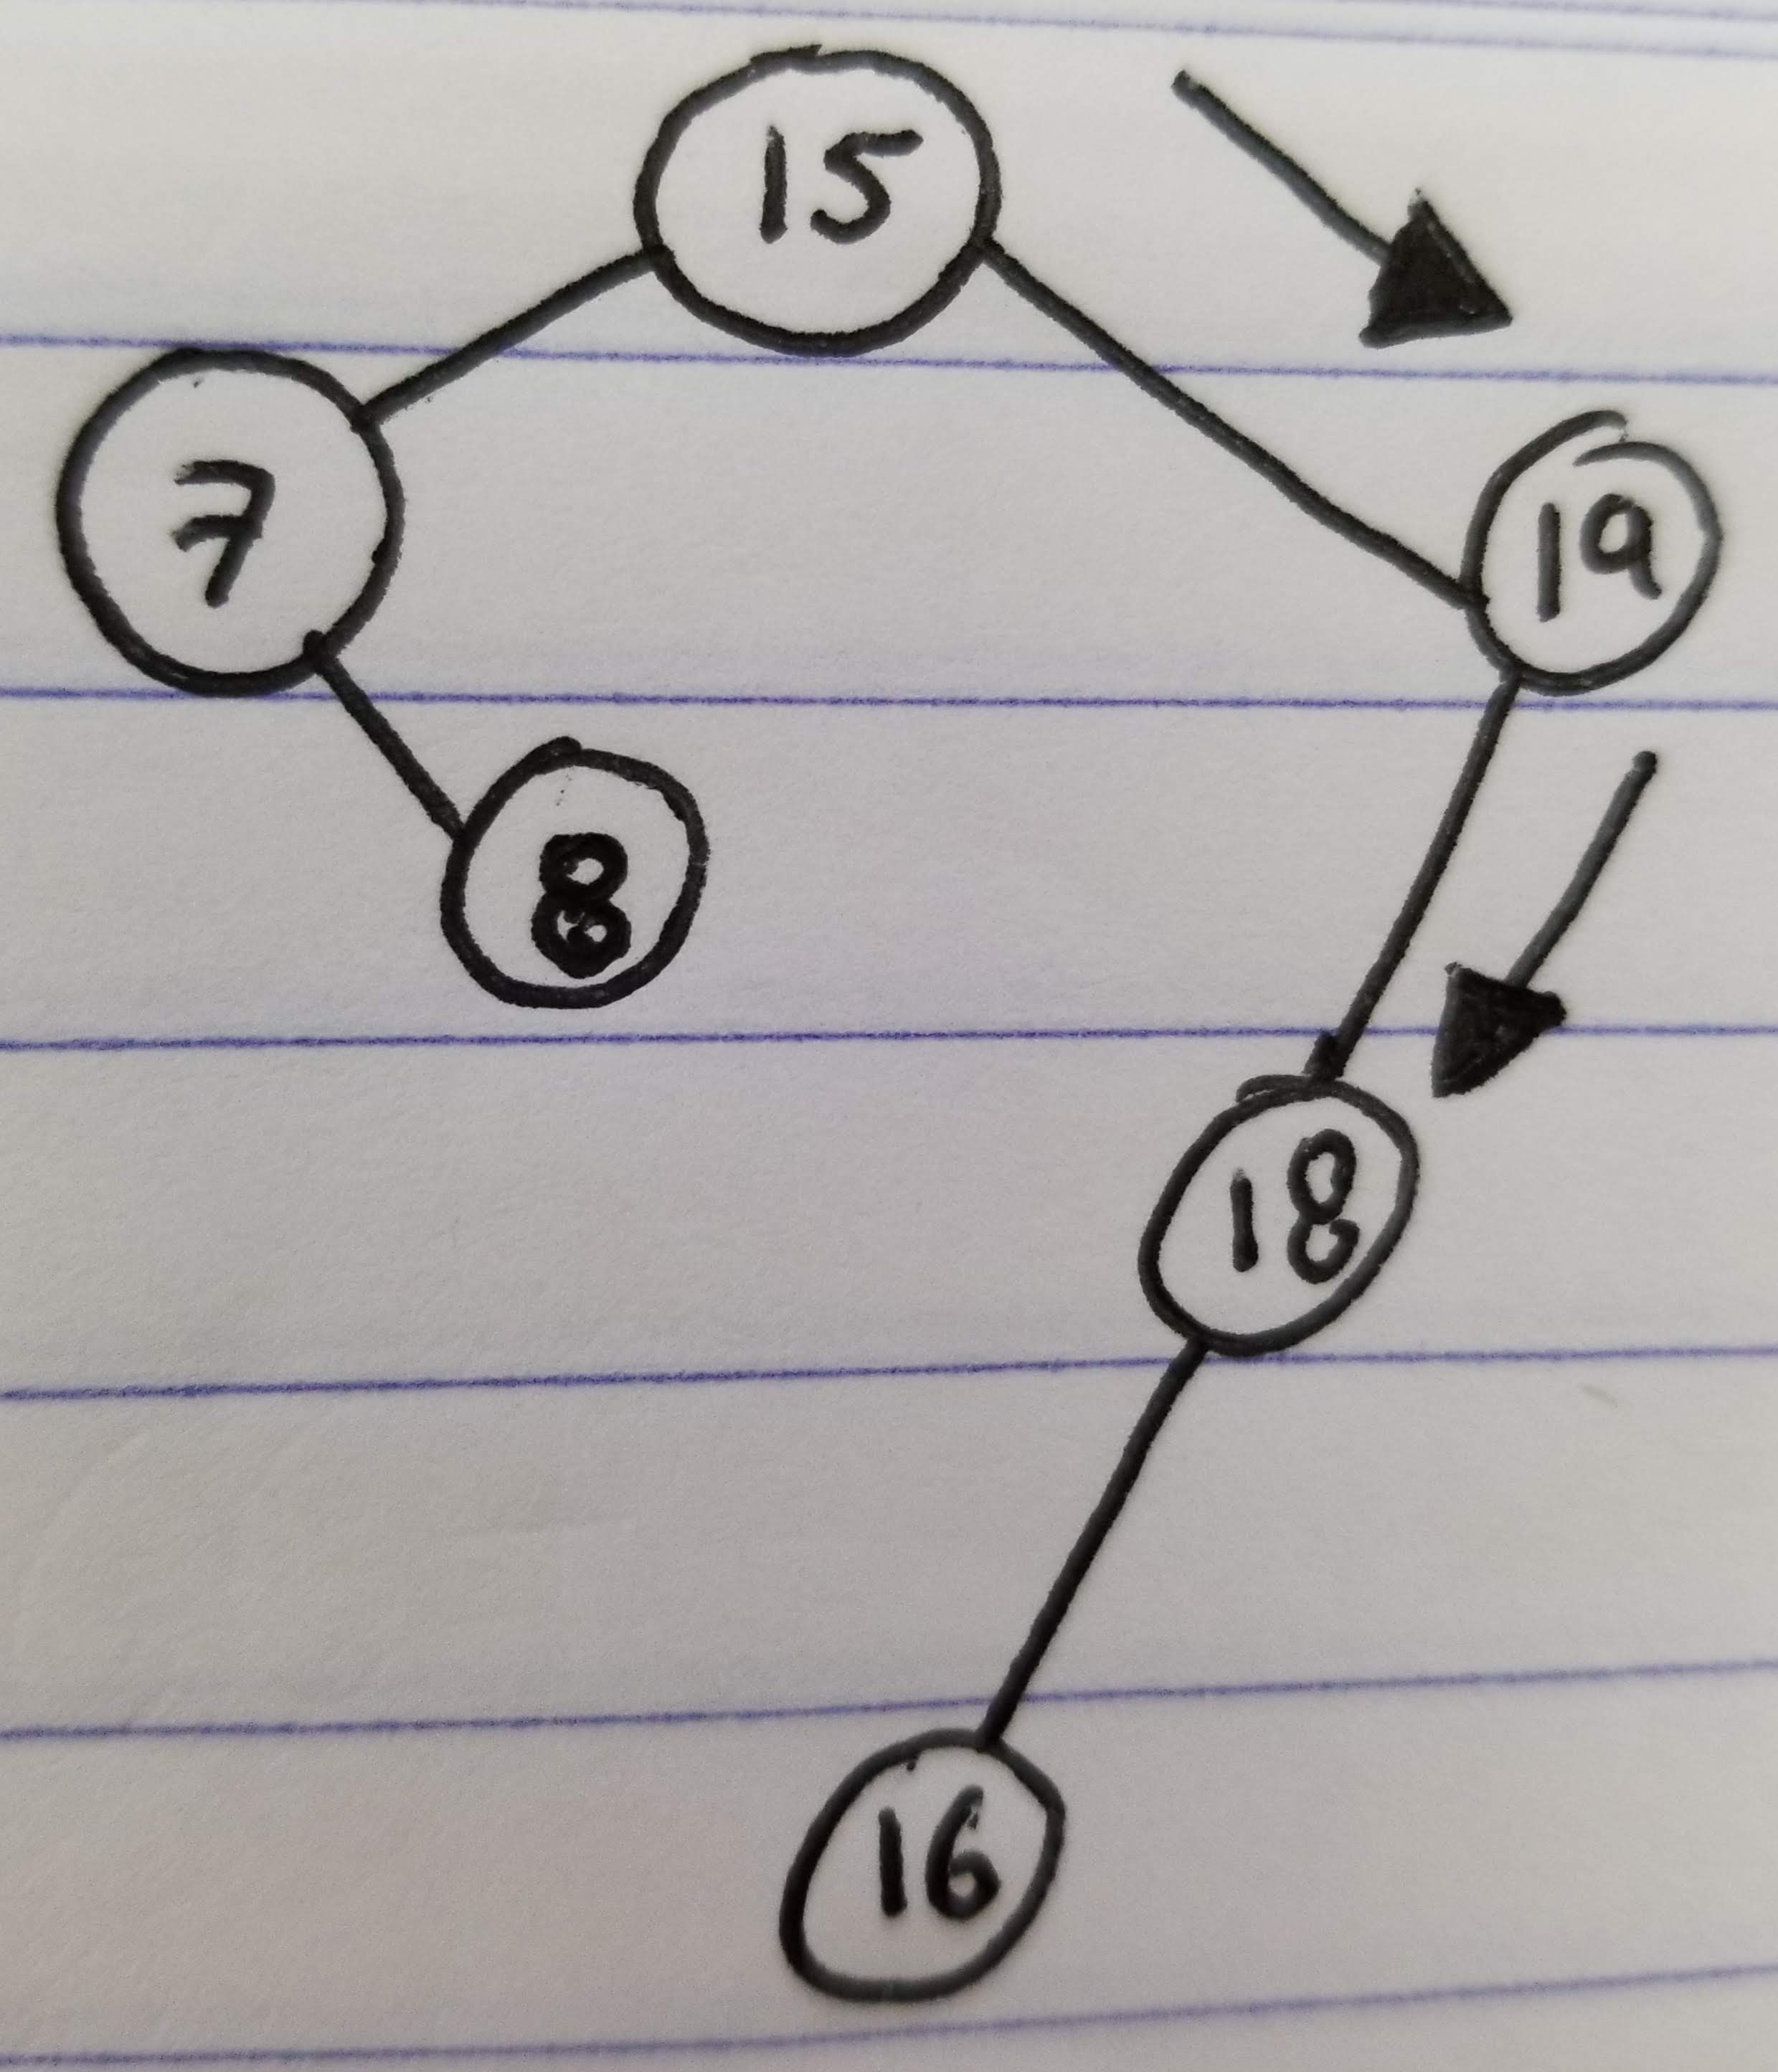 15
7
19
8
18
16